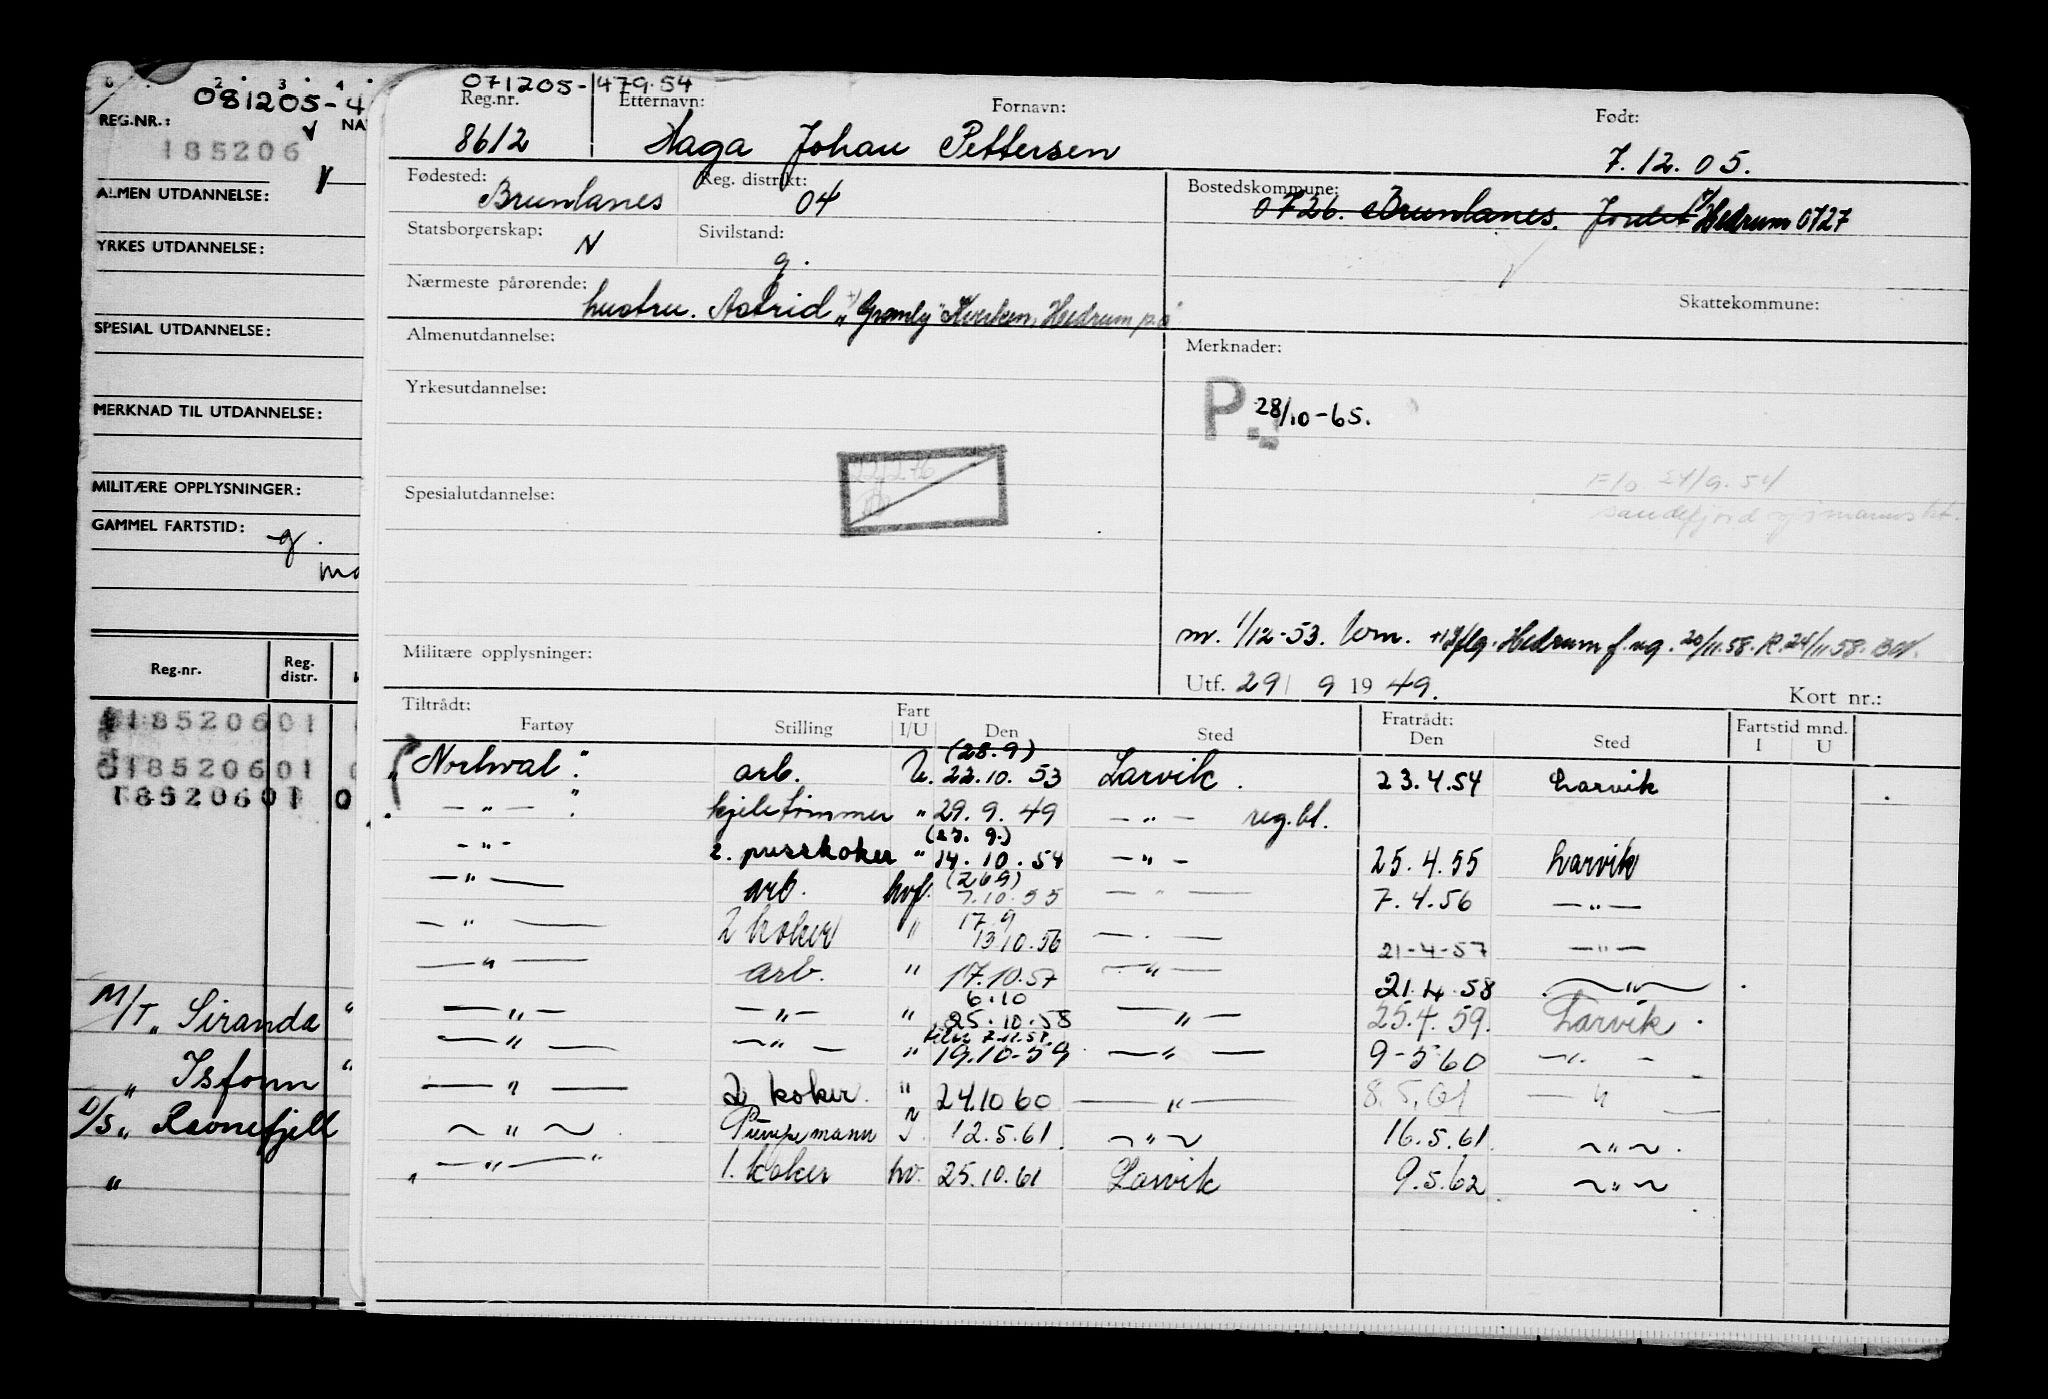 081205-4
REG.NR.:
NA
185206
ALMEN UTDANNELSE:
YRKES UTDANNELSE:
SPESIAL UTDANNELSE:
MERKNAD TIL UTDANNELSE:
MILITÆRE OPPLYSNINGER:
GAMMEL FARTSTID:
g.
Reg.nr. Reg. distr.
18520601
18520601
18520601 0
M/T „ Siranda "
„ Isfonn "
D/S „ Ravnefjell
"
071205-479.54
Reg.nr. Etternavn: Fornavn: Født:
8612 Haga Johan Pettersen 7.12.05.
Fødested: Brunlanes Reg. distrikt: 04 Bostedskommune: 0726. Brunlanes. Hedrum 0727
Statsborgerskap: N Sivilstand: g.
Nærmeste pårørende: hustru. Astrid „Granly" Kvelken, Hedrum p.å
Skattekommune:
Almenutdannelse:
Merknader:
Yrkesutdannelse:
P. 28/10-65.
Spesialutdannelse:
F/o 24/9.54
sandefjord sjømannsktr.
m. 1/12-53. +) Iflg. Hedrum f.reg. 20/11.58. R.24/11 58.
Militære opplysninger:
Utf. 29/ 9 1949.
Kort nr.:
Tiltrådt: Fratrådt:
Fartøy Stilling Fart I/U Den Sted Den Sted Fartstid mnd. I U
(28.9)
„Norhval" arb. U. 22.10.53 Larvik. 23.4.54 Larvik
— " — kjeletrimmer " 29.9.49 — " — reg.bl.
(27.9.)
— " — 2. presskoker " 14.10.54 — " — 25.4.55 Larvik
(26 9)
— " — arb. hvf. 7.10.55 — " — 7.4.56 — " —
17.9
— " — 2 koker " 13 10.56 — " — 21-4-57 — " —
— " — arb. " 17.10.57 — " — 21.4.58 — " —
6.10
— " — — " — " 25.10.58 — " — 25.4.59. Larvik.
— " — — " — " 19.10-59 — " — 9-5 60 — " —
— " — 2 koker. " 24.10 60 — " — 8.5.61 — " —
~ " ~ Pumpemann I. 12.5.61. ~ " ~ 16.5.61. ~ " ~.
— " — 1. koker hv. 25.10.61 Larvik 9.5.62. ~ " ~